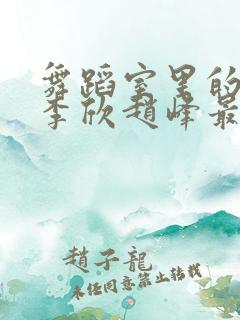 舞蹈室里的
李欣趙峰最
趙子龍
未经同意禁止转载